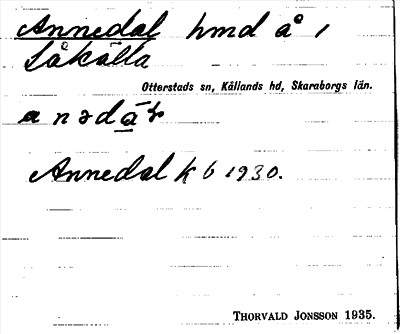 Annedal hmd å 1
Låkälla
Otterstads sn, Kållands hd, Skaraborgs län.
Annedal k 6 1930.
THORVALD JONSSON 1935.